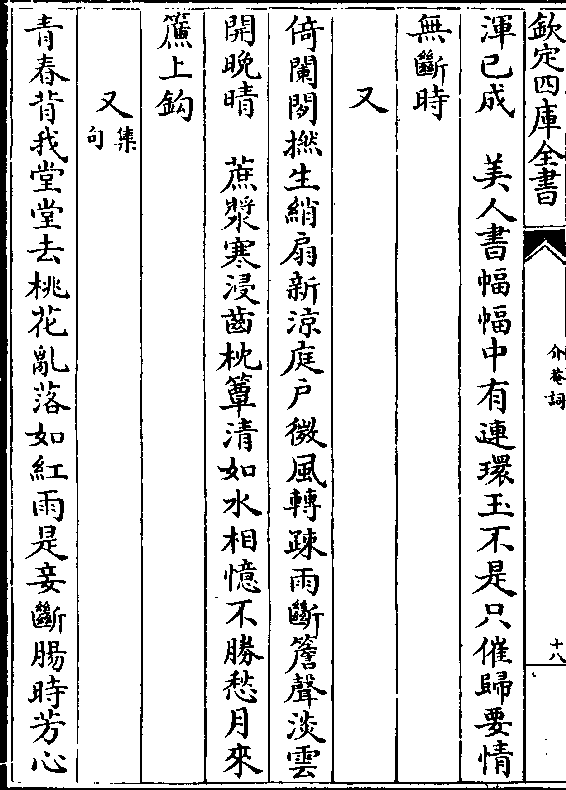 欽定四庫全書
介菴詞
十八
渾已成　美人書幅幅中有連環玉不是只催歸要情
無斷時
又
倚闌閣撚生綃扇新涼庭戶微風轉疎雨斷簷聲淡雲
開晚晴　蔗漿寒浸齒枕簟清如水相憶不勝愁月來
簾上鈎
又集句
青春背我堂堂去桃花亂落如紅雨是妾斷腸時芳心